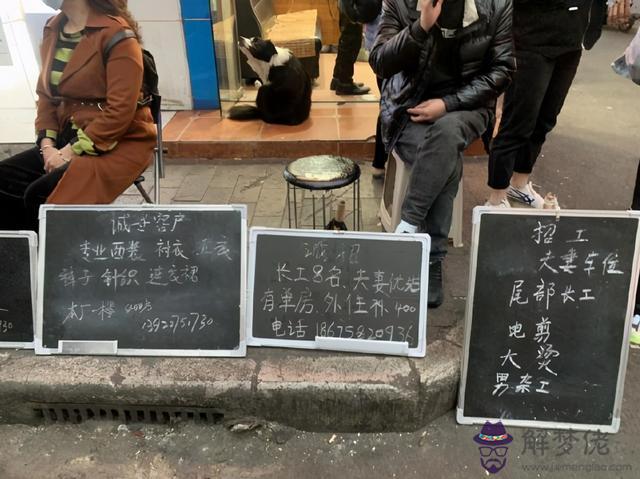 诚寻客户
专业西装 衬衣
裤子 针织 连衣裙
本厂一楼
13923751730
730
招
长工8名、夫妻优先
有单房、外住补400
电话 18675820936
招工
夫妻车位
尾部长工
电剪
大烫
男杂工
解梦佬
www.jiemenglao.com